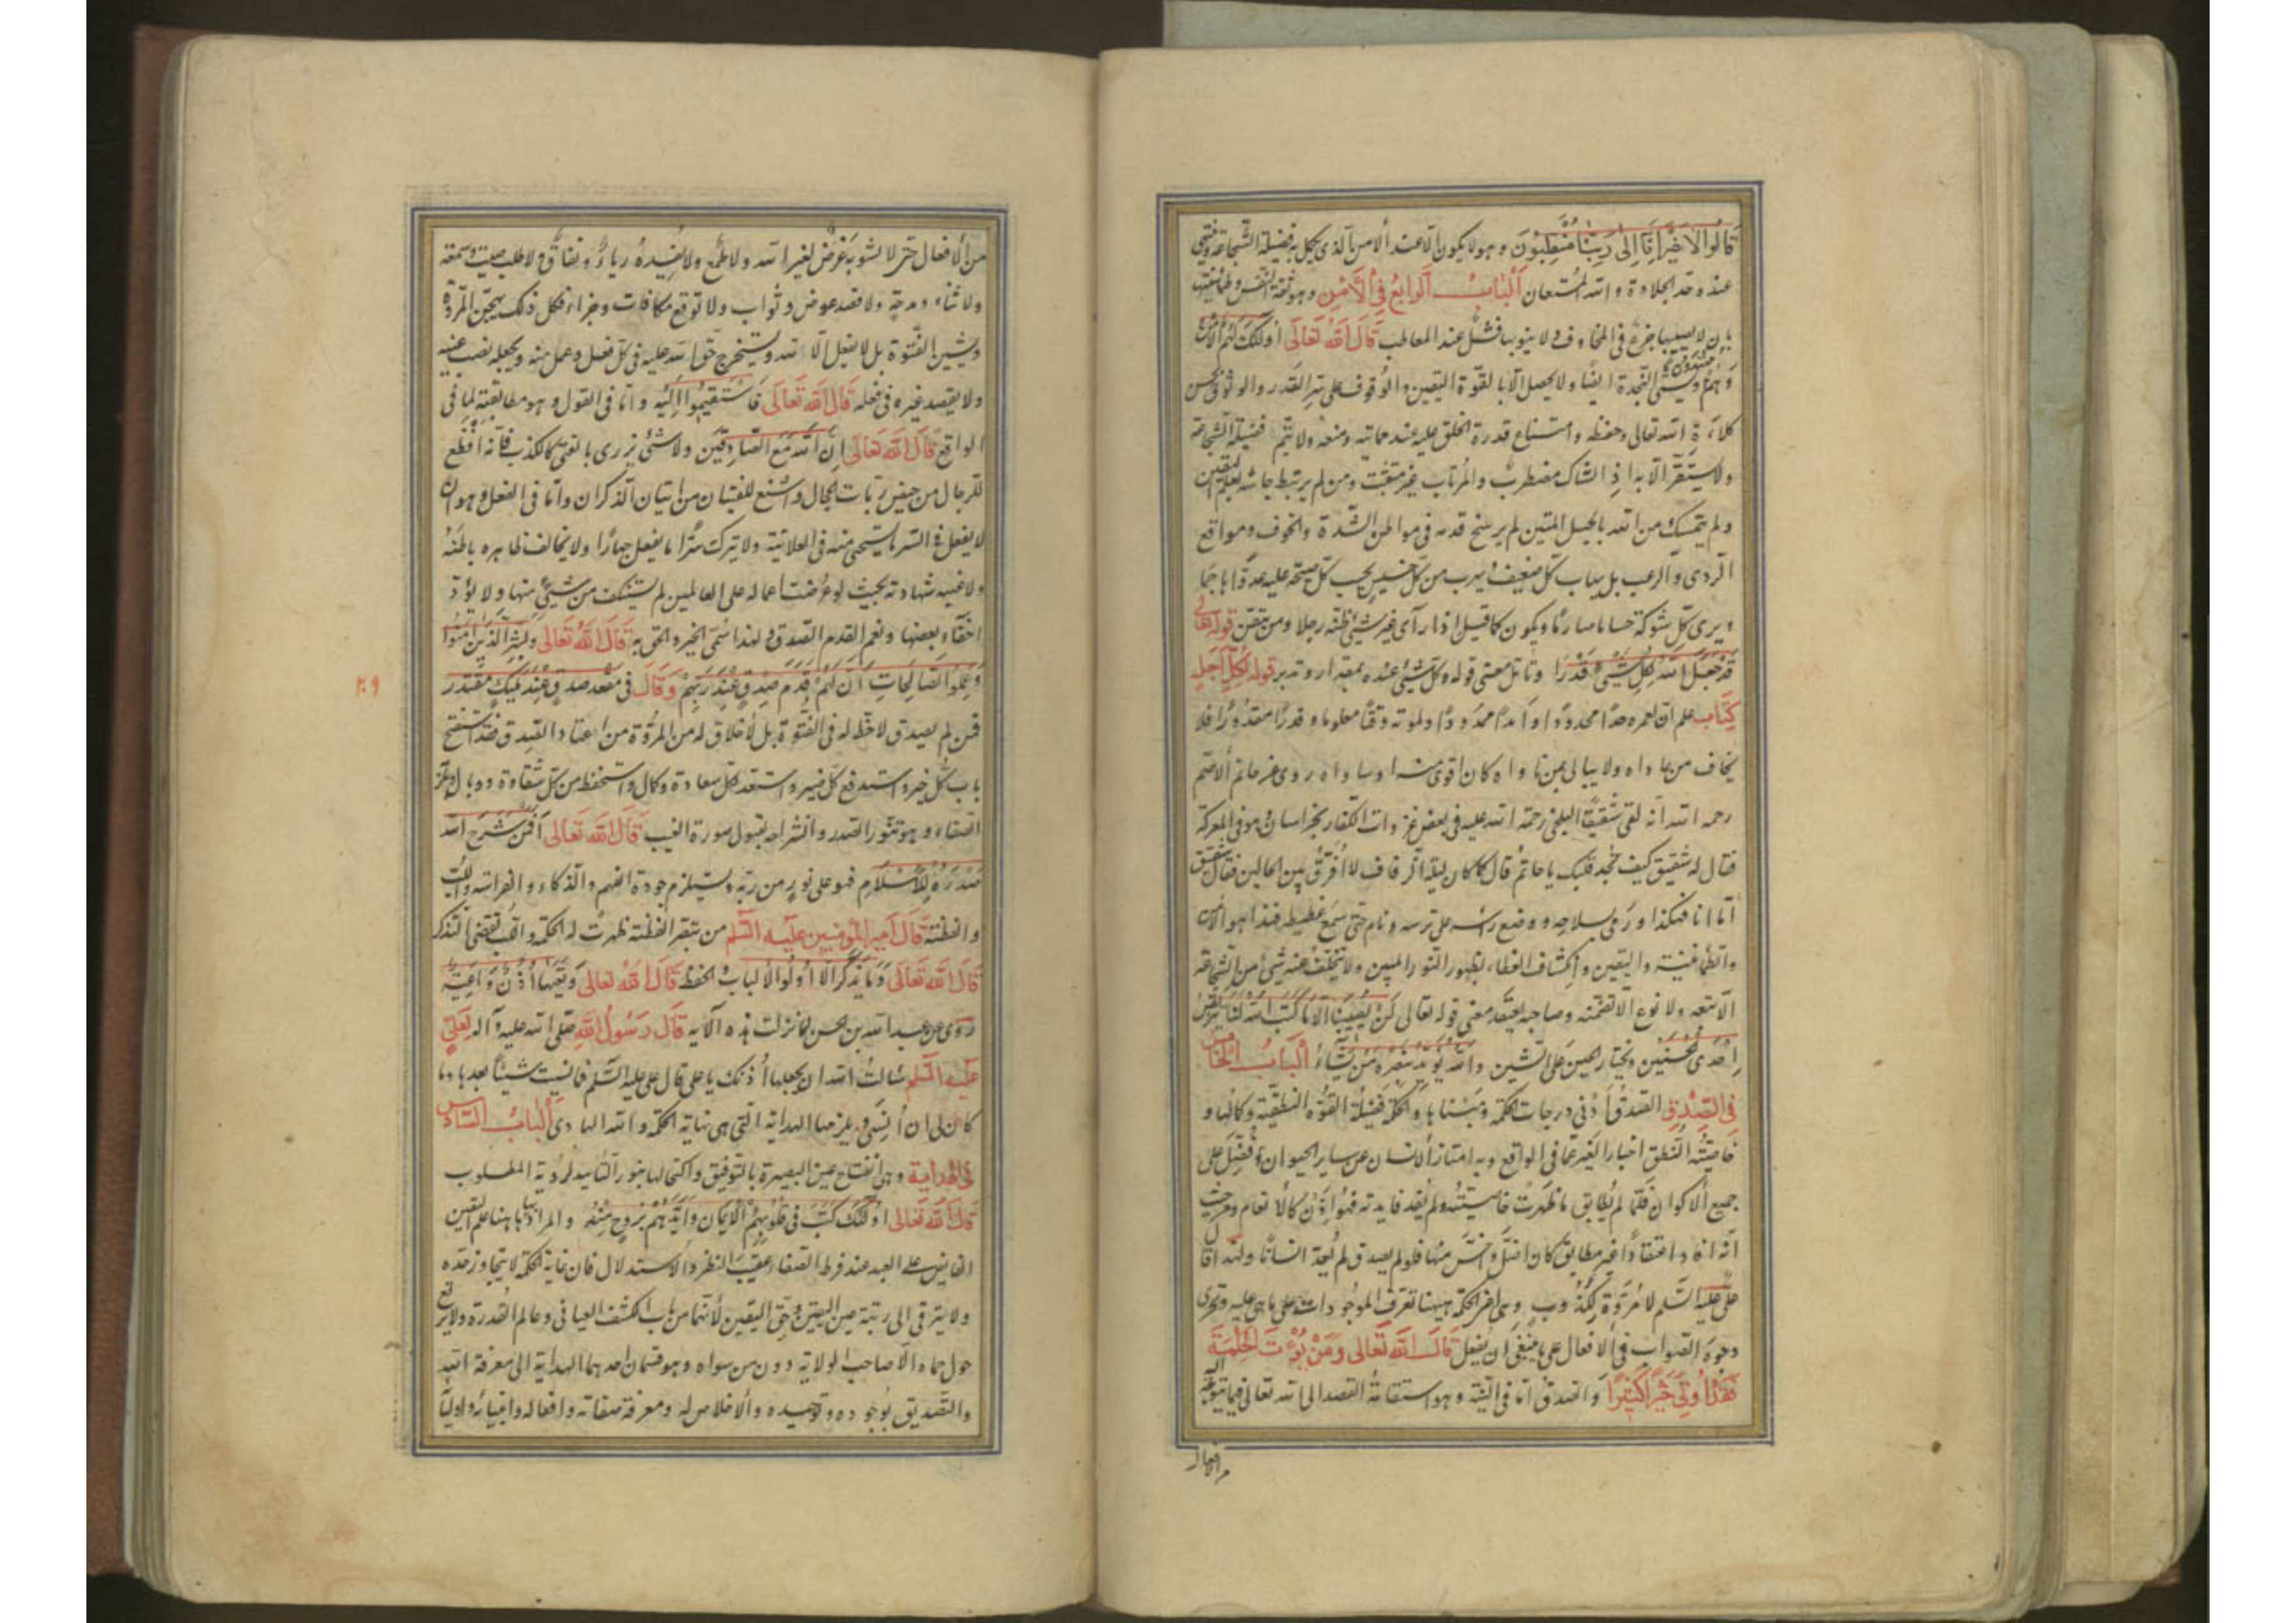 قَالُوا لَا ضَيْرَ اِنَّا اِلَى رَبِّنَا مُنْقَلِبُوْنَ وهو لا يكون الّا عند الامن الّذى يكمل به فضيلة الشّجاعة وينتهى
عنده حد الجلادة والله المُستعان اَلْبَابُ الرَّابِعُ فِى الْاَمْنِ وهو ثقة النّفس وطمأنينتها
بان لا يصيبها جزع فى المخاوف ولا ينوبها فشل عند المعاطب قَالَ اللهُ تَعَالَى اُولٰئِكَ لَهُمُ الْاَمْنُ
وَهُمْ مُهْتَدُونَ ويسمى النّجدة ايضًا ولا يحصل الّا بالقوّة اليقين والوُقوف على سِرّ القَدر والوثوق بحسن
كلاءة الله تعالى وحفظه وامتناع قدرة الخلق عليه عند حمايته ومنعه ولا يتمّ فضيلة الشّجاعة
ولا يستقرّ الّا به اذ الشاك مضطربٌ والمُرتاب غير متثبّت ومن لم يرتبط جاشه بعلم اليقين
ولم يتمسك من الله بالحبل المتين لم يرسخ قدمه فى مواطن الشّدة والخوف ومواقع
الردى والرعب بل يهاب كلّ ضعيف ويهرب من كلّ خسيس يحسب كلّ صيحة عليه عدوًّا هاجمًا
ويرى كلّ شوكة حسامًا صارمًا ويكون كما قيل اذا رأى غير شيئ ظنّه رجلا ومن تيقّن قوله تعالى
قَدْ جَعَلَ اللهُ لِكُلِّ شَيْئٍ قَدْرًا وتامّل معنى قوله وكلّ شيئ عنده بمقدار وتدبر قوله لِكُلِّ اَجَلٍ
كِتَابٌ علم انّ لعمره حدًّا محدودًا وامدًا ممدودًا ولموته وقتًا معلوما وقدرًا مقدورًا فلا
يخاف من عاداه ولا يبالى بمن ناواه كان اقوى منه او ساواه روى عن حاتم الاصمّ
رحمه الله انّه لقى شقيقًا البلخى رحمة الله عليه فى بعض غزوات الكفار بخراسان وهو فى المعركة
فقال له شقيق كيف تجد قلبك يا حاتم قال كما كان ليلة الزفاف لا اُفرّق بين الحالين فقال شقيق
امّا انا فهكذا ورمى بسلاحه ووضع راسه على ترسه ونام حتى سمع غطيطه فهذا هو الامن
والطمأنينة واليقين وانكشاف الغطاء لظهور النّور المبين ولا يتخلّف عنه شئ من الشجاعة
الّا يتبعه ولا نوع الّا تضمّنه وصاحبه يعتقد معنى قوله تعالى لَنْ يُصِيبَنَا اِلَّا مَا كَتَبَ اللهُ لَنَا
اِحْدَى الْحُسْنَيَيْنِ ويختار الحَيْن على الشّين وَاللهُ يُؤَيِّدُ بِنَصْرِهِ مَنْ يَشَاءُ اَلْبَابُ الْخَامِسُ
فِى الصِّدْقِ الصدقُ اَدْنى درجات الحكمة ومبناها والحكمة فضيلة القُوّة النطقيّة وكمالها و
خاصيّتُه النُّطق اخبار الغير عمّا فى الواقع وبه امتاز الانسان عن ساير الحيوان وفُضّل على
جميع الاكوان فلمّا لم يُطابق ما ظهرت خاصيّتُه ولم يُفد فايدته فهُو اِذَن كالانعام ومن حيث
انّه افاد اعتقادًا غير مطابق كان اضلَّ واخسَّ منها فلو لم يصدق لم يُعدّ انسانًا ولهذا قال
علىّ عليه السّلم لا مُروّة لكذوب وسياهر الحكمة ههنا تعرف الموجودات على ما هى عليه وتحرّى
وجوه الصّواب فى الافعال على ما ينبغى ان يفعل قَالَ اللهُ تَعَالى وَمَنْ يُؤْتَ الْحِكْمَةَ
فَقَدْ اُوتِىَ خَيْرًا كَثِيْرًا والصدقُ امّا فى النيّة وهو استقامةُ القصد الى الله تعالى فيما يتوجّه اليه
من الافعال
من الافعال حتّى لا يشوبه غرض لغير الله ولا طمع ولا يُفسِدهُ رياءٌ ونفاقٌ ولا طلب صيت وسمعة
ولا ثناء ومدحة ولا قصد عوض وثواب ولا توقع مكافات وجزاء فكل ذلك يهجّن المروّة
ويشين الفتوّة بل لا يفعل الّا لله ويستخرج حقّ الله عليه فى كلّ فعل وعمل منه ويجعله نصب عينيه
ولا يقصد غيره فى فعله قَالَ اللهُ تَعَالَى فَاسْتَقِيْمُوا اِلَيْهِ وامّا فى القول وهو مطابقته لما فى
الواقع قَالَ اللهُ تَعَالَى اِنَّ اللهَ مَعَ الصَّادِقِيْنَ ولا شئ يزرى بالفتى كالكذب فانّه افظع
للرجال من حيض ربّات الحجال واشنع للفتيان من اتيان الذّكران وامّا فى الفعل وهو ان
لا يفعل فى السّر ما يستحيى منه فى العلانية ولا يترك سرًّا ما يفعل جهارًا ولا يخالف ظاهره باطنَهُ
ولا غيبه شهادته بحيث لو عُرضت اعماله على العالمين لم يستنكف من شيئ منها ولا يودّ
اخفاء بعضها ونعم القدم الصّدق ولهذا سُمّى الخير والحق به قَالَ اللهُ تَعَالَى وَبَشِّرِ الَّذِيْنَ اٰمَنُوا
وَعَمِلُوا الصَّالِحَاتِ اَنَّ لَهُمْ قَدَمَ صِدْقٍ عِنْدَ رَبِّهِمْ وَقَالَ فى مقعد صدقٍ عند مليكٍ مقتدر
فمن لم يصدق لا حظّ له فى الفتوّة بل لا خلاق له من المرُوّة ومن اعتاد الصّدق فقد استفتح
باب كُلّ خير واستدفع كلّ ضير واستعد لكلّ سعادة وكمال واستحفظ من كلّ شقاوة ووبال
الصّفاء وهو تنوّر الصّدر وانشراحه لقبول صورة الغيب قَالَ اللهُ تَعَالَى اَفَمَنْ شَرَحَ اللهُ
صَدْرَهُ لِلْاِسْلَامِ فهو على نورٍ من ربّه ويستلزم جودة الفهم والذّكاء والفراسة واللّب
والفطنة قَالَ اَمِيرُ الْمُؤْمِنِينَ عَلَيْهِ السَّلم من تبصّر الفطنة ظهرت له الحكمة واللّب يقتضى التّذكر
قَالَ اللهُ تَعَالَى وَمَا يَذَّكَّرُ اِلَّا اُولُوا الْاَلْبَابِ الحفظ قَالَ اللهُ تعالى وَتَعِيَهَا اُذُنٌ وَاعِيَةٌ
روى عن عبد الله بن الحسن لما نزلت هذه الآية قَالَ رَسُولُ اللهِ صلّى الله عليه وآله لِعَلِىٍّ
عَلَيْهِ السَّلم سألتُ الله ان يجعلها اُذنك يا على قال على عليه السّلم فما نسيت شيئًا بعدها وما
كان لى ان اَنسى ويلزمها الهداية الّتى هى نهاية الحكمة والله الهادى اَلْبَابُ السَّادِسُ
فِى الْهِدَايَةِ وهى انفتاح عين البصيرة بالتّوفيق واكتحالها بنور التّاييد لرُؤية المطلوب
قَالَ اللهُ تَعَالَى اُولٰئِكَ كَتَبَ فى قُلُوبِهِمُ الْاِيْمَانَ وَاَيَّدَهُمْ بِرُوحٍ مِنْهُ والمراد بها هٰهنا علم اليقين
الفايض على العبد عند فرط الصّفاء عقيب النّظر والاستدلال فان غاية الحكمة لا يتجاوز حدّه
ولا يترقى الى رتبة عين اليقين وحقّ اليقين لانّهما من باب الكشف العيانى وعالم القُدرة ولا يرتع
حول حماه الّا صاحب الولاية دون من سواه وهو قسمان احدهما الهداية الى معرفة الله
والتّصديق بوُجوده وتوحيده والاخلاص له ومعرفة صفاته وافعاله وانبيائه واوليائه
٢٠٩